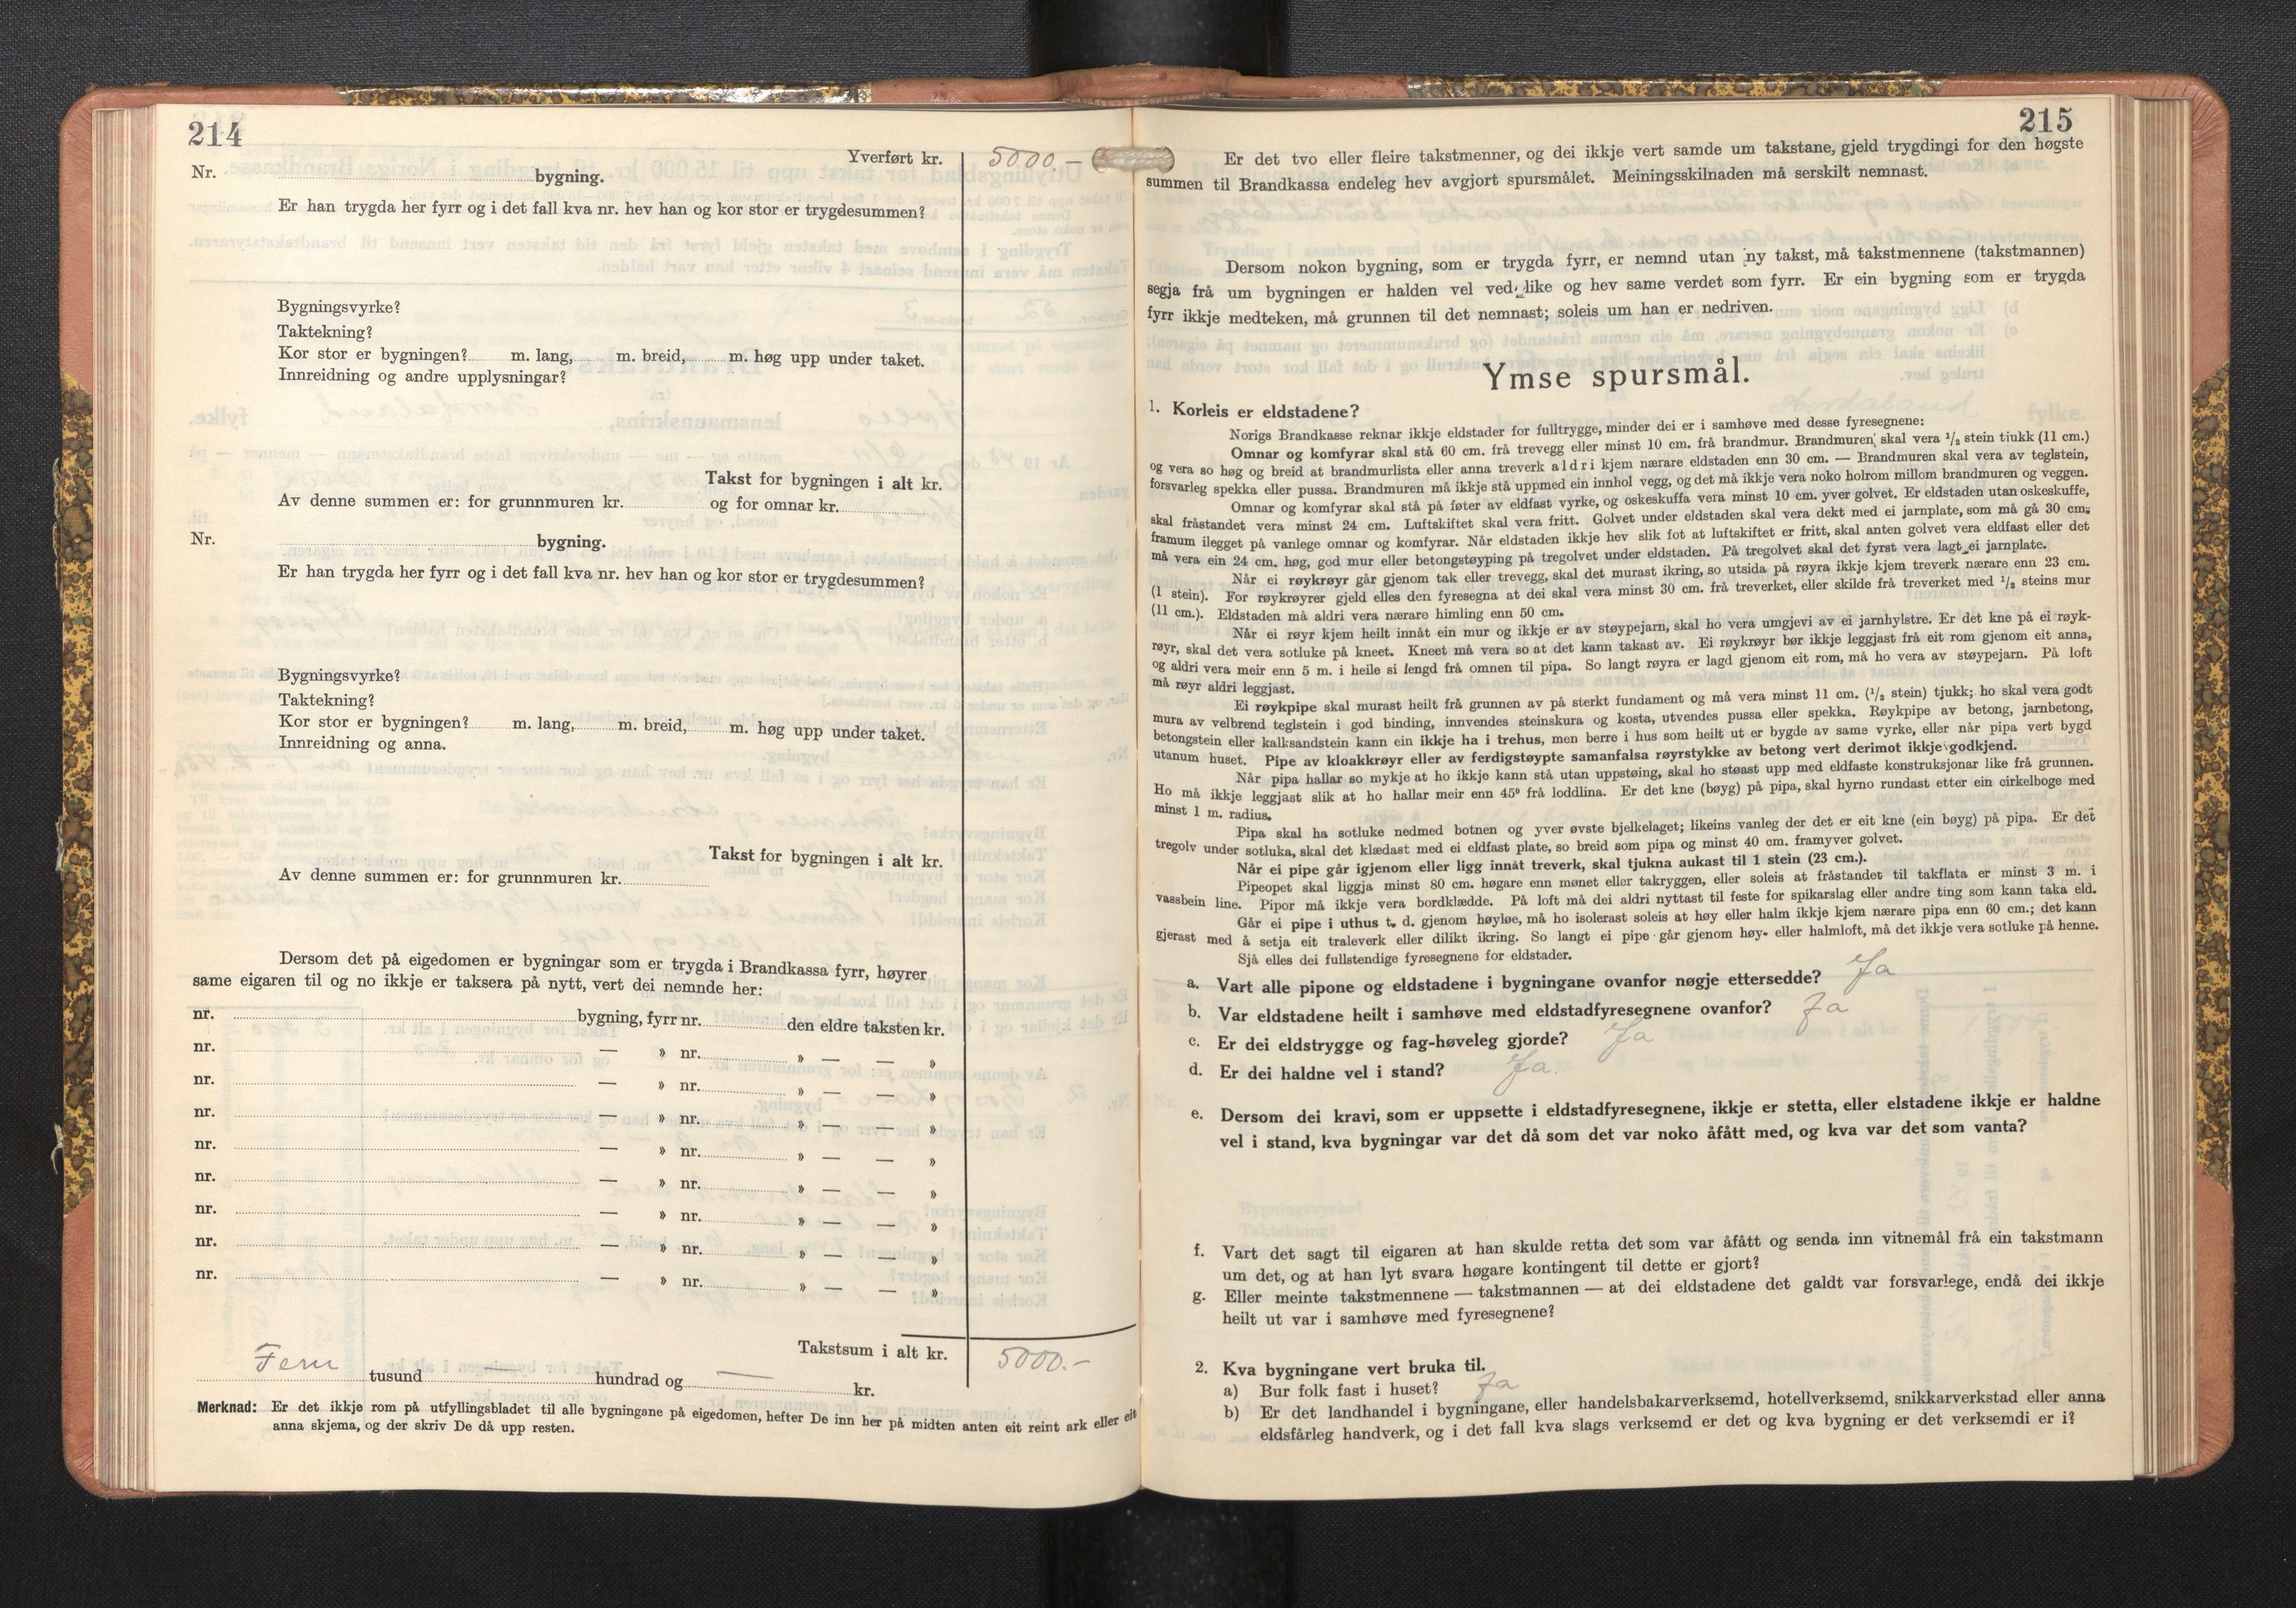 214
Yverført kr. 5000.-
Nr. bygning.
Er han trygda her fyrr og i det fall kva nr. hev han og kor stor er trygdesummen?
Bygningsvyrke?
Taktekning?
Kor stor er bygningen? m. lang, m. breid, m. høg upp under taket.
Innreidning og andre upplysningar?
Takst for bygningen i alt kr.
Av denne summen er: for grunnmuren kr. og for omnar kr.
Nr. bygning.
Er han trygda her fyrr og i det fall kva nr. hev han og kor stor er trygdesummen?
Bygningsvyrke?
Taktekning?
Kor stor er bygningen? m. lang, m. breid, m. høg upp under taket.
Innreidning og anna.
Takst for bygningen i alt kr.
Av denne summen er: for grunnmuren kr.
Dersom det på eigedomen er bygningar som er trygda i Brandkassa fyrr, høyrer
same eigaren til og no ikkje er taksera på nytt, vert dei nemnde her:
nr. bygning, fyrr nr. den eldre taksten kr.
nr. — » nr. » — — »
nr. — » nr. » — — »
nr. — » nr. » — — »
nr. — » nr. » — — »
nr. — » nr. » — — »
nr. — » nr. » — — »
nr. — » nr. » — — »
nr. — » nr. » — — »
Takstsum i alt kr. 5000.-
Fem tusund — hundrad og — kr.
Merknad: Er det ikkje rom på utfyllingsbladet til alle bygningane på eigedomen, hefter De inn her på midten anten eit reint ark eller eit
anna skjema, og der skriv De då upp resten.
215
Er det tvo eller fleire takstmenner, og dei ikkje vert samde um takstane, gjeld trygdingi for den høgste
summen til Brandkassa endeleg hev avgjort spursmålet. Meiningsskilnaden må serskilt nemnast.
Dersom nokon bygning, som er trygda fyrr, er nemnd utan ny takst, må takstmennene (takstmannen)
segja frå um bygningen er halden vel ved like og hev same verdet som fyrr. Er ein bygning som er trygda
fyrr ikkje medteken, må grunnen til det nemnast; soleis um han er nedriven.
Ymse spursmål.
1. Korleis er eldstadene?
Norigs Brandkasse reknar ikkje eldstader for fulltrygge, minder dei er i samhøve med desse fyresegnene:
Omnar og komfyrar skal stå 60 cm. frå trevegg eller minst 10 cm. frå brandmur. Brandmuren skal vera ½ stein tiukk (11 cm.)
og vera so høg og breid at brandmurlista eller anna treverk aldri kjem nærare eldstaden enn 30 cm. — Brandmuren skal vera av teglstein,
forsvarleg spekka eller pussa. Brandmuren må ikkje stå uppmed ein innhol vegg, og det må ikkje vera noko holrom millom brandmuren og veggen.
Omnar og komfyrar skal stå på føter av eldfast vyrke, og oskeskuffa vera minst 10 cm. yver golvet. Er eldstaden utan oskeskuffe,
skal fråstandet vera minst 24 cm. Luftskiftet skal vera fritt. Golvet under eldstaden skal vera dekt med ei jarnplate, som må gå 30 cm.
framum ilegget på vanlege omnar og komfyrar. Når eldstaden ikkje hev slik fot at luftskiftet er fritt, skal anten golvet vera eldfast eller det
må vera ein 24 cm. høg, god mur eller betongstøyping på tregolvet under eldstaden. På tregolvet skal det fyrst vera lagt ei jarnplate.
Når ei røykrøyr går gjenom tak eller trevegg, skal det murast ikring, so utsida på røyra ikkje kjem treverk nærare enn 23 cm.
(1 stein). For røykrøyrer gjeld elles den fyresegna at dei skal vera minst 30 cm. frå treverket, eller skilde frå treverket med ½ steins mur
(11 cm.). Eldstaden må aldri vera nærare himling enn 50 cm.
Når ei røyr kjem heilt innåt ein mur og ikkje er av støypejarn, skal ho vera umgjevi av ei jarnhylstre. Er det kne på ei røyk-
røyr, skal det vera sotluke på kneet. Kneet må vera so at det kann takast av. Ei røykrøyr bør ikkje leggjast frå eit rom gjenom eit anna,
og aldri vera meir enn 5 m. i heile si lengd frå omnen til pipa. So langt røyra er lagd gjenom eit rom, må ho vera av støypejarn. På loft
må røyr aldri leggjast.
Ei røykpipe skal murast heilt frå grunnen av på sterkt fundament og må vera minst 11 cm. (½ stein) tjukk; ho skal vera godt
mura av velbrend teglstein i god binding, innvendes steinskura og kosta, utvendes pussa eller spekka. Røykpipe av betong, jarnbetong,
betongstein eller kalksandstein kann ein ikkje ha i trehus, men berre i hus som heilt ut er bygde av same vyrke, eller når pipa vert bygd
utanum huset. Pipe av kloakkrøyr eller av ferdigstøypte samanfalsa røyrstykke av betong vert derimot ikkje godkjend.
Når pipa hallar so mykje at ho ikkje kann stå utan uppstøing, skal ho støast upp med eldfaste konstruksjonar like frå grunnen.
Ho må ikkje leggjast slik at ho hallar meir enn 45° frå loddlina. Er det kne (bøyg) på pipa, skal hyrno rundast etter ein cirkelboge med
minst 1 m. radius.
Pipa skal ha sotluke nedmed botnen og yver øvste bjelkelaget; likeins vanleg der det er eit kne (ein bøyg) på pipa. Er det
tregolv under sotluka, skal det klædast med ei eldfast plate, so breid som pipa og minst 40 cm. framyver golvet.
Når ei pipe går igjenom eller ligg innåt treverk, skal tjukna aukast til 1 stein (23 cm.).
Pipeopet skal liggja minst 80 cm. høgare enn mønet eller takryggen, eller soleis at fråstandet til takflata er minst 3 m. i
vassbein line. Pipor må ikkje vera bordklædde. På loft må dei aldri nyttast til feste for spikarslag eller andre ting som kann taka eld.
Går ei pipe i uthus t. d. gjenom høyløe, må ho isolerast soleis at høy eller halm ikkje kjem nærare pipa enn 60 cm.; det kann
gjerast med å setja eit traleverk eller dilikt ikring. So langt ei pipe går gjenom høy- eller halmloft, må det ikkje vera sotluke på henne.
Sjå elles dei fullstendige fyresegnene for eldstader.
a. Vart alle pipone og eldstadene i bygningane ovanfor nøgje ettersedde? Ja
b. Var eldstadene heilt i samhøve med eldstadfyresegnene ovanfor? Ja
c. Er dei eldstrygge og fag-høveleg gjorde? Ja
d. Er dei haldne vel i stand? Ja.
e. Dersom dei kravi, som er uppsette i eldstadfyresegnene, ikkje er stetta, eller elstadene ikkje er haldne
vel i stand, kva bygningar var det då som det var noko åfått med, og kva var det som vanta?
f. Vart det sagt til eigaren at han skulde retta det som var åfått og senda inn vitnemål frå ein takstmann
um det, og at han lyt svara høgare kontingent til dette er gjort?
g. Eller meinte takstmennene — takstmannen — at dei eldstadene det galdt var forsvarlege, endå dei ikkje
heilt ut var i samhøve med fyresegnene?
2. Kva bygningane vert bruka til.
a) Bur folk fast i huset? Ja
b) Er det landhandel i bygningane, eller handelsbakarverksemd, hotellverksemd, snikkarverkstad eller anna
eldsfårleg handverk, og i det fall kva slags verksemd er det og kva bygning er det verksemdi er i?